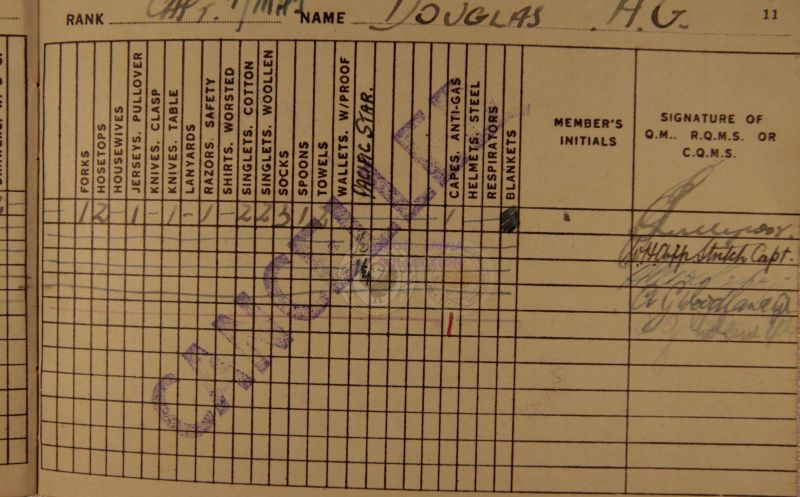 RANK CAPT. NAME DOUGLAS H.G. 11
FORKS
HOSETOPS
HOUSEWIVES
JERSEYS. PULLOVER
KNIVES. CLASP
KNIVES. TABLE
LANYARDS
RAZORS. SAFETY
SHIRTS. WORSTED
SINGLETS. COTTON
SINGLETS. WOOLLEN
SOCKS
SPOONS
TOWELS
WALLETS. W/PROOF
PACIFIC STAR.
CAPES. ANTI-GAS
HELMETS. STEEL
RESPIRATORS
BLANKETS
MEMBER'S
INITIALS
SIGNATURE OF
Q.M.. R.Q.M.S. OR
C.Q.M.S.
1 2 - 1 - 1 - 1 - 2 2 3 1 2 - 1
Capt.
1
CANCELLED